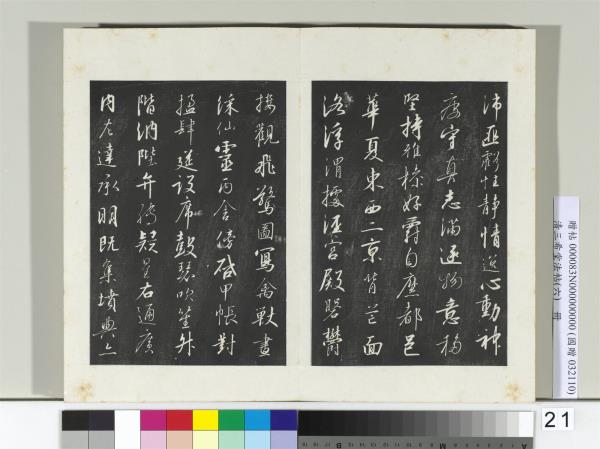 沛匪虧性靜情逸心動神
疲守真志滿逐物意移
堅持雅操好爵自縻都邑
華夏東西二京背芒面
洛浮渭據涇宮殿盤鬱
樓觀飛驚圖寫禽獸畫
綵仙靈丙舍傍啟甲帳對
楹肆筵設席鼓瑟吹笙升
階納陛弁轉疑星右通廣
內左達承明既集墳典亦
贈帖 000083N000000000 (國贈 032110)
清三希堂法帖(六) 冊
21